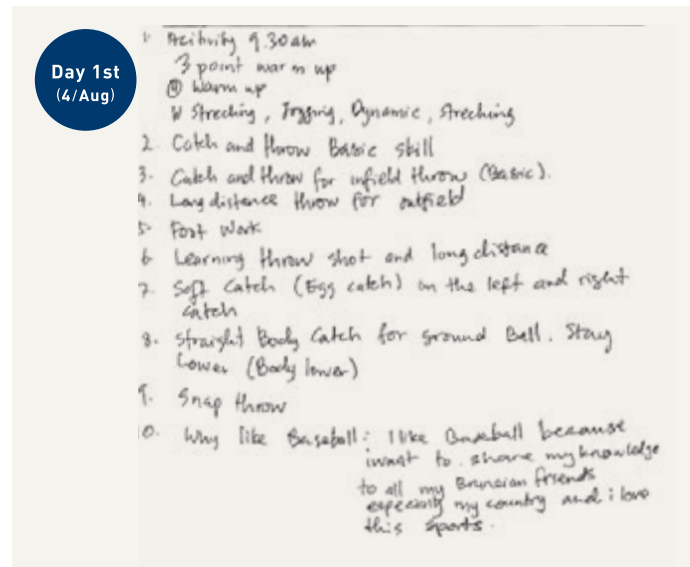 Day 1st
(4/Aug)
1. Acitivity 9.30am
3 point warm up
warm up
Streching, Jogging, Dynamic, streching
2. Catch and throw Basic skill
3. Catch and throw for infield throw (Basic).
4. Long distance throw for outfield
5. Foot Work
6. Learning throw shot and long distance
7. Soft Catch (Egg catch) on the left and right
catch
8. Straight Body Catch for ground Ball. Stay
Lower (Body lower)
9. Snap throw
10. Why like Baseball: I like Baseball because
i want to share my knowledge
to all my Bruneian friends
especially my country and i love
this sports.